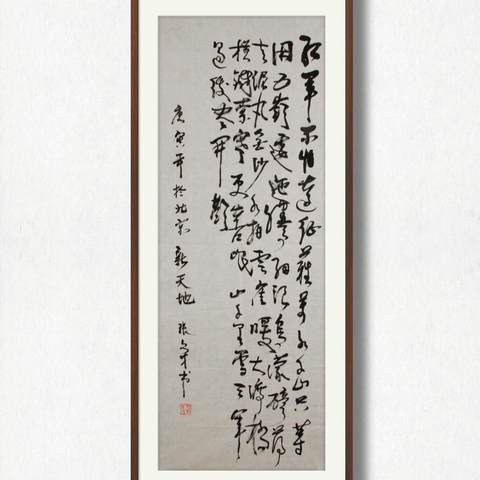 红军不怕遠征難萬水千山只等
闲五嶺逶迤腾细浪乌蒙磅礴
走泥丸金沙水拍雲崖暖大渡桥
横铁索寒更喜岷山千里雪三军
过後尽开颜
庚寅年於北京新天地 张文才书